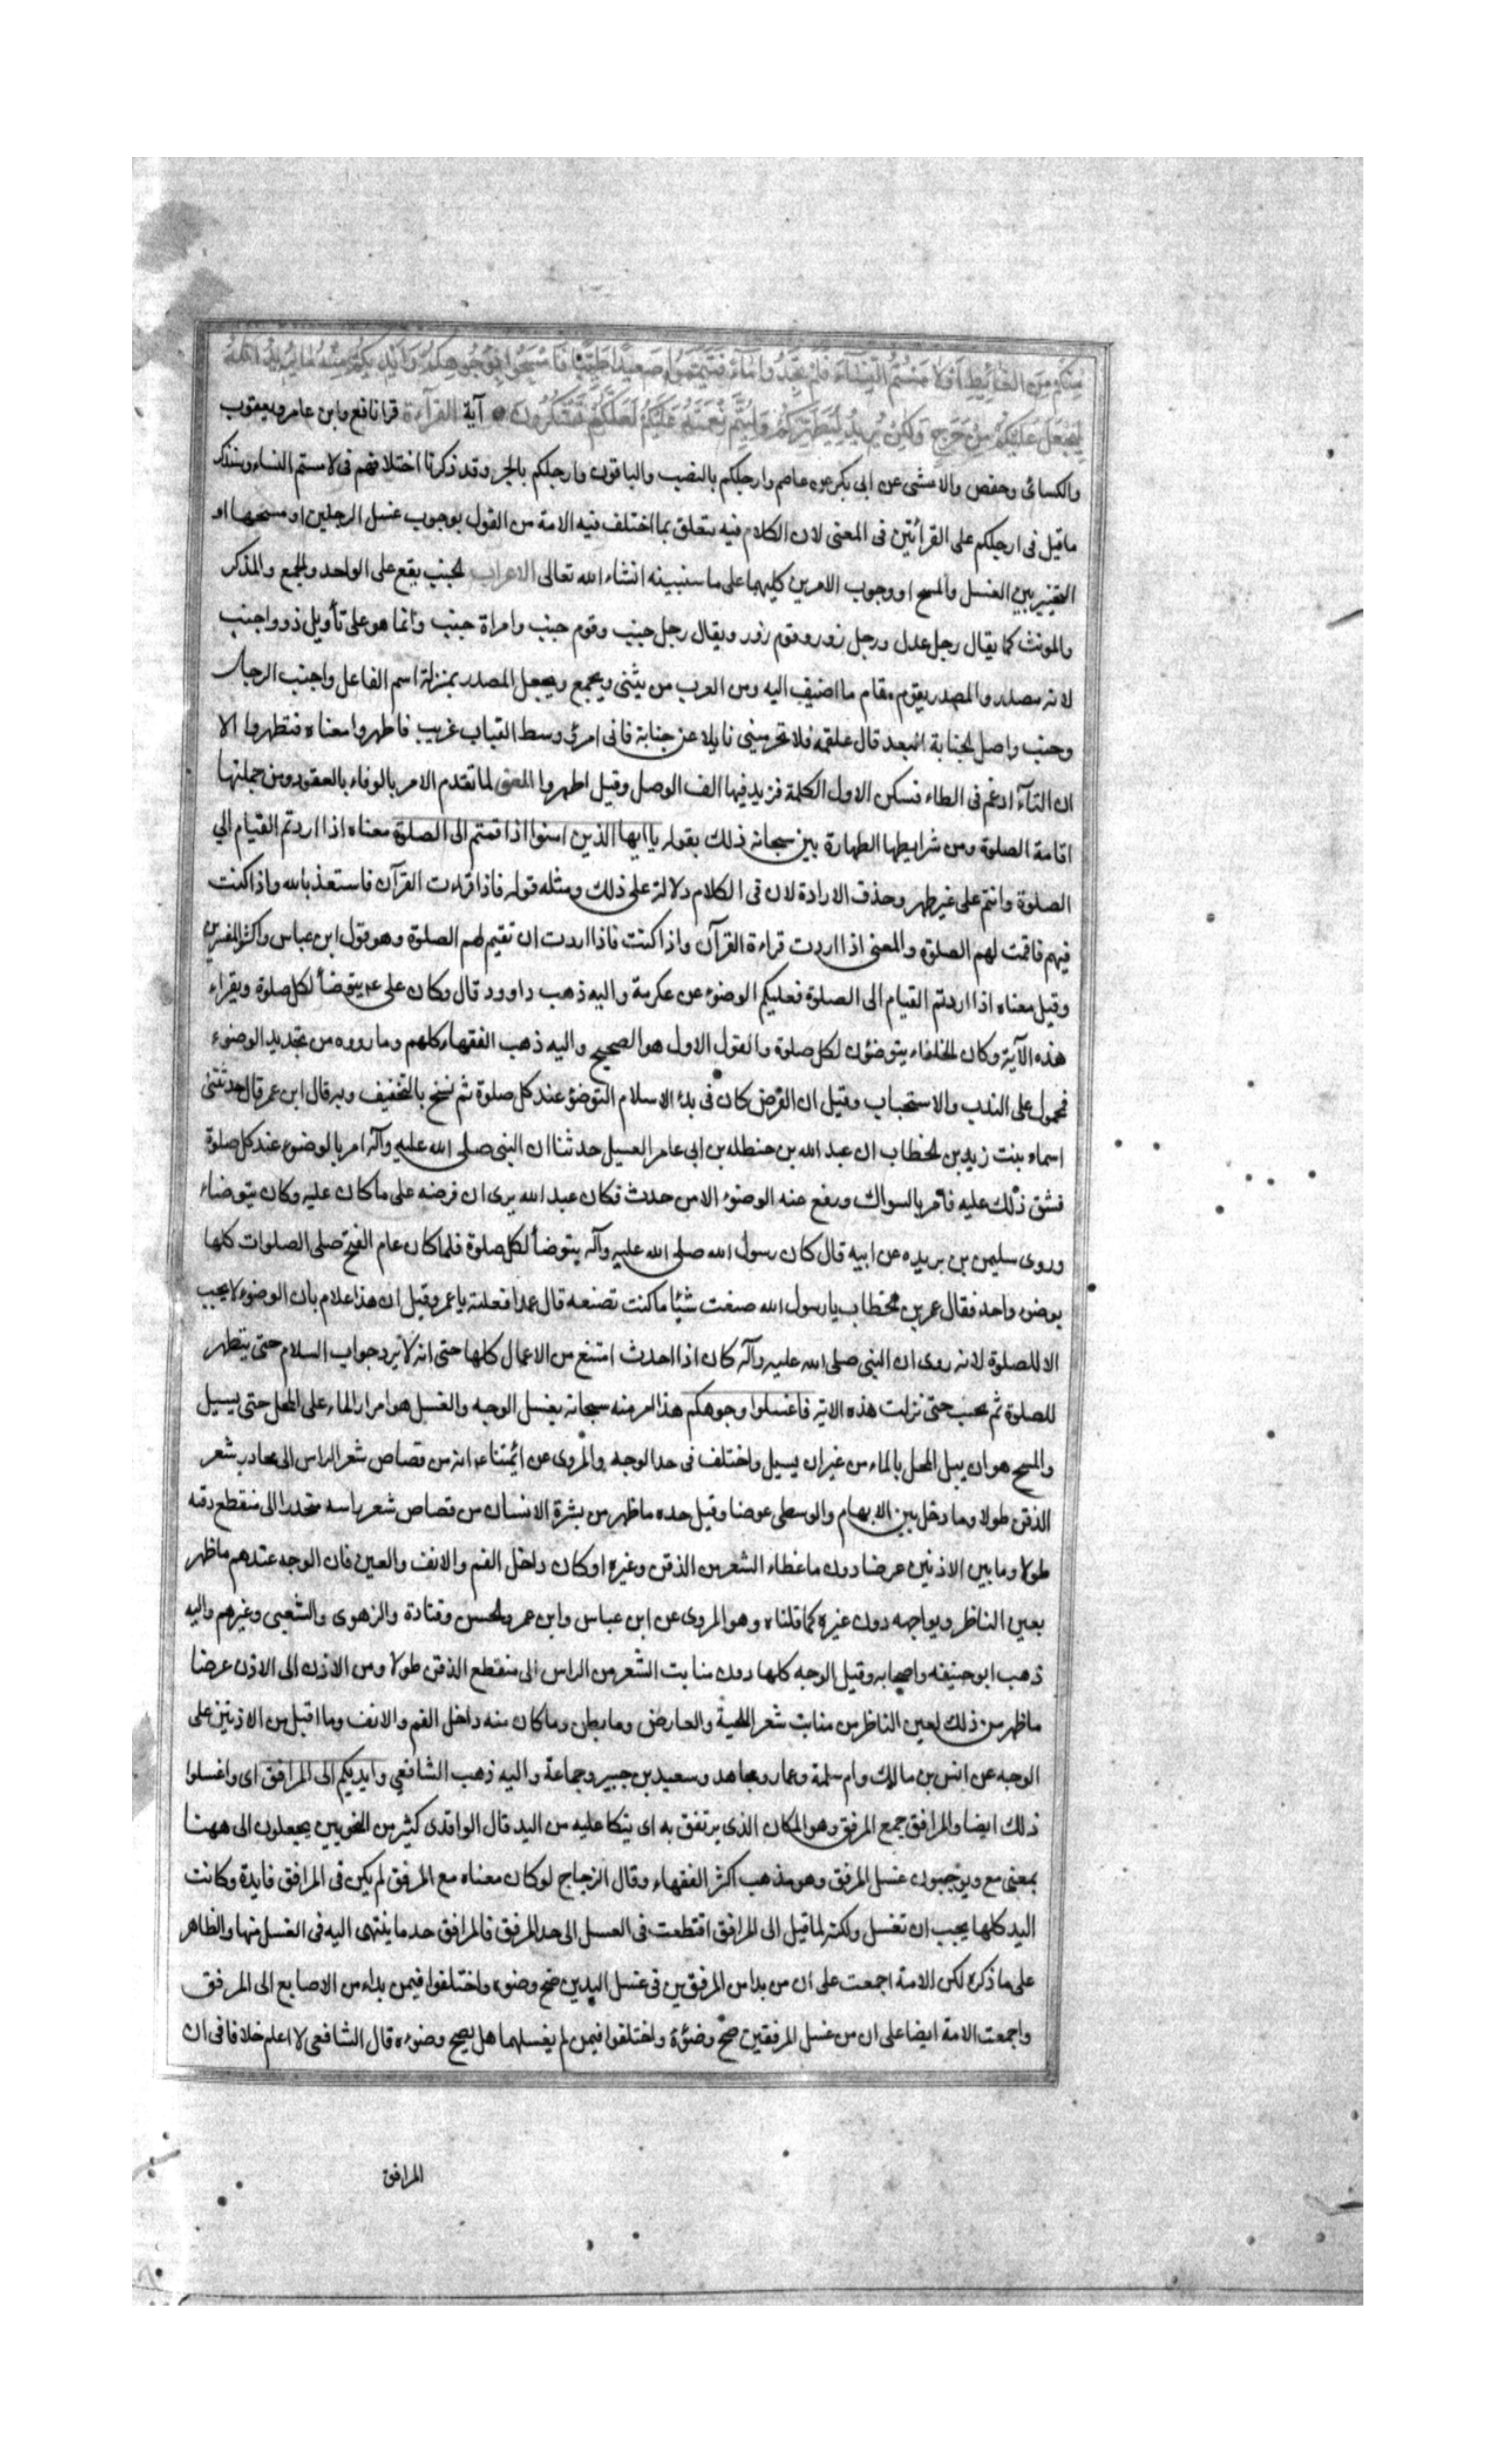 مِنْكُمْ مِنَ الْغَائِطِ اَوْ لَامَسْتُمُ النِّسَاءَ فَلَمْ تَجِدُوا مَاءً فَتَيَمَّمُوا صَعِيدًا طَيِّبًا فَامْسَحُوا بِوُجُوهِكُمْ وَاَيْدِيكُمْ مِنْهُ مَا يُرِيدُ اللّٰهُ
لِيَجْعَلَ عَلَيْكُمْ مِنْ حَرَجٍ وَلَكِنْ يُرِيدُ لِيُطَهِّرَكُمْ وَلِيُتِمَّ نِعْمَتَهُ عَلَيْكُمْ لَعَلَّكُمْ تَشْكُرُونَ آية القرآءة قرا نافع وابن عامر ويعقوب
والكسائى وحفص والاعشى عن ابى بكر عن عاصم وارجلكم بالنصب والباقون وارجلكم بالجر وقد ذكرنا اختلافهم فى لامستم النساء وسنذكر
ماقيل فى ارجلكم على القرأئتين فى المعنى لان الكلام فيه يتعلق بما اختلف فيه الامة من القول بوجوب غسل الرجلين او مسحهما او
التخيير بين الغسل والمسح او وجوب الامرين كليهما على ما سنبينه انشاء الله تعالى الاعراب الجنب يقع على الواحد والجمع والمذكر
والمونث كما يقال رجل عدل ورجل زور وقوم زور ويقال رجل جنب وقوم جنب وامراة جنب وانما هو على تأويل ذو واجنب
لانه مصدر والمصدر يقوم مقام ما اضيف اليه ومن العرب من يثنى ويجمع ويجعل المصدر بمنزلة اسم الفاعل واجنب الرجل
وجنب واصل الجنابة البعد قال علقمه فلا تحرمينى نايلا عن جنابة فانى امرئ وسط القباب غريب فاطهروا معناه فتطهروا الا
ان التآء ادغم فى الطاء فسكن الاول الكلمة فزيد فيها الف الوصل وقيل اطهروا المعنى لما تقدم الامر بالوفاء بالعقود ومن جملتها
اقامة الصلوة ومن شرايطها الطهارة بين سبحانه ذلك بقوله يا ايها الذين امنوا اذا قمتم الى الصلوة معناه اذا اردتم القيام الى
الصلوة وانتم على غير طهر وحذف الارادة لان فى الكلام دلالة على ذلك ومثله قوله فاذا قراءت القرآن فاستعذ بالله واذا كنت
فيهم فاقمت لهم الصلوة والمعنى اذا اردت قراءة القرآن واذا كنت فاذا اردت ان تقيم لهم الصلوة وهو قول ابن عباس واكثر المفسرين
وقيل معناه اذا اردتم القيام الى الصلوة فعليكم الوضوء عن عكرمة واليه ذهب داوود قال وكان على ع يتوضأ لكل صلوة ويقراء
هذه الآية وكان الخلفاء يتوضؤن لكل صلوة والقول الاول هو الصحيح واليه ذهب الفقهاء كلهم وما رووه من تجديد الوضوء
فمحمول على الندب والاستحباب وقيل ان الفرض كان فى بدء الاسلام التوضؤ عند كل صلوة ثم نسخ بالتخفيف وبه قال ابن عمر قال حدثتنى
اسماء بنت زيد بن الخطاب ان عبد الله بن حنطله بن ابى عامر الغسيل حدثنا ان النبى صلى الله عليه وآله امر بالوضوء عند كل صلوة
فشق ذلك عليه فأمر بالسواك ورفع عنه الوضوء الا من حدث فكان عبد الله يرى ان فرضه على ما كان عليه وكان يتوضاء
وروى سليمن بن بريده عن ابيه قال كان رسول الله صلى الله عليه وآله يتوضأ لكل صلوة فلما كان عام الفتح صلى الصلوات كلها
بوضوء واحد فقال عمر بن الخطاب يا رسول الله صنعت شيئا ما كنت تصنعه قال عمدا فعلته يا عمر وقيل ان هذا اعلام بان الوضوء لا يجب
الا للصلوة لانه روى ان النبى صلى الله عليه وآله كان اذا احدث امتنع من الاعمال كلها حتى انه لا يرد جواب السلام حتى يتطهر
للصلوة ثم يجيب حتى نزلت هذه الاية فاغسلوا وجوهكم هذا امر منه سبحانه بغسل الوجه والغسل هو امرار الماء على المحل حتى يسيل
والمسح هو ان يبل المحل بالماء من غير ان يسيل واختلف فى حد الوجه والمروى عن ائمتنا ع انه من قصاص شعر الراس الى محادر شعر
الذقن طولا وما دخل بين الابهام والوسطى عرضا وقيل حده ما ظهر من بشرة الانسان من قصاص شعر راسه منحدرا الى منقطع ذقنه
طولا وما بين الاذنين عرضا دون ما غطاه الشعر من الذقن وغيره او كان داخل الفم والانف والعين فان الوجه عندهم ما ظهر
بعين الناظر ويواجهه دون غيره كما قلناه وهو المروى عن ابن عباس وابن عمر والحسن وقتادة والزهرى والشعبى وغيرهم واليه
ذهب ابو حنيفه واصحابه وقيل الوجه كلها دون منابت الشعر من الراس الى منقطع الذقن طولا ومن الاذن الى الاذن عرضا
ما ظهر من ذلك لعين الناظر من منابت شعر اللحية والعارض وما بطن وما كان منه داخل الفم والانف وما اقبل من الاذنين على
الوجه عن انس بن مالك وام سلمة وعمار ومجاهد وسعيد بن جبير وجماعة واليه ذهب الشافعي وايديكم الى المرافق اى واغسلوا
ذلك ايضا والمرافق جمع المرفق وهو المكان الذى يرتفق به اى يتكا عليه من اليد قال الواقدى كثير من النحويين يجعلون الى ههنا
بمعنى مع ويوجبون غسل المرفق وهو مذهب اكثر الفقهاء وقال الزجاج لو كان معناه مع المرفق لم يكن فى المرافق فايدة وكانت
اليد كلها يجب ان تغسل ولكنه لما قيل الى المرافق اقتطعت فى الغسل الى حد المرفق فالمرافق حد ما ينتهى اليه فى الغسل منها والظاهر
على ما ذكره لكن الامة اجمعت على ان من بدا من المرفقين فى غسل اليدين صح وضوءه واختلفوا فيمن بداء من الاصابع الى المرفق
واجمعت الامة ايضا على ان من غسل المرفقين صح وضؤه واختلفوا فيمن لم يغسلهما هل يصح وضوءه قال الشافعى لا اعلم خلافا فى ان
المرافق